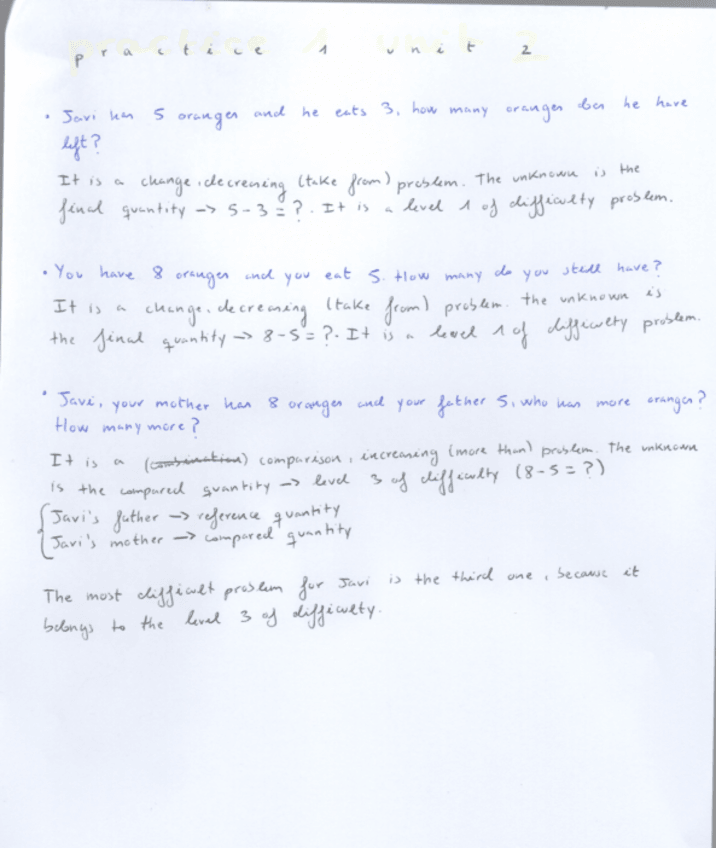 practice 1 unit 2
• Javi has 5 oranges and he eats 3, how many oranges does he have
left?
It is a change, decreasing (take from) problem. The unknown is the
final quantity -> 5-3=?. It is a level 1 of difficulty problem.
• You have 8 oranges and you eat 5. How many do you still have?
It is a change, decreasing (take from) problem. the unknown is
the final quantity -> 8-5=?. It is a level 1 of difficulty problem.
• Javi, your mother has 8 oranges and your father 5, who has more oranges?
How many more?
It is a (combination) comparison, increasing (more than) problem. The unknown
is the compared quantity -> level 3 of difficulty (8-5=?)
Javi's father -> reference quantity
Javi's mother -> compared quantity
The most difficult problem for Javi is the third one, because it
belongs to the level 3 of difficulty.